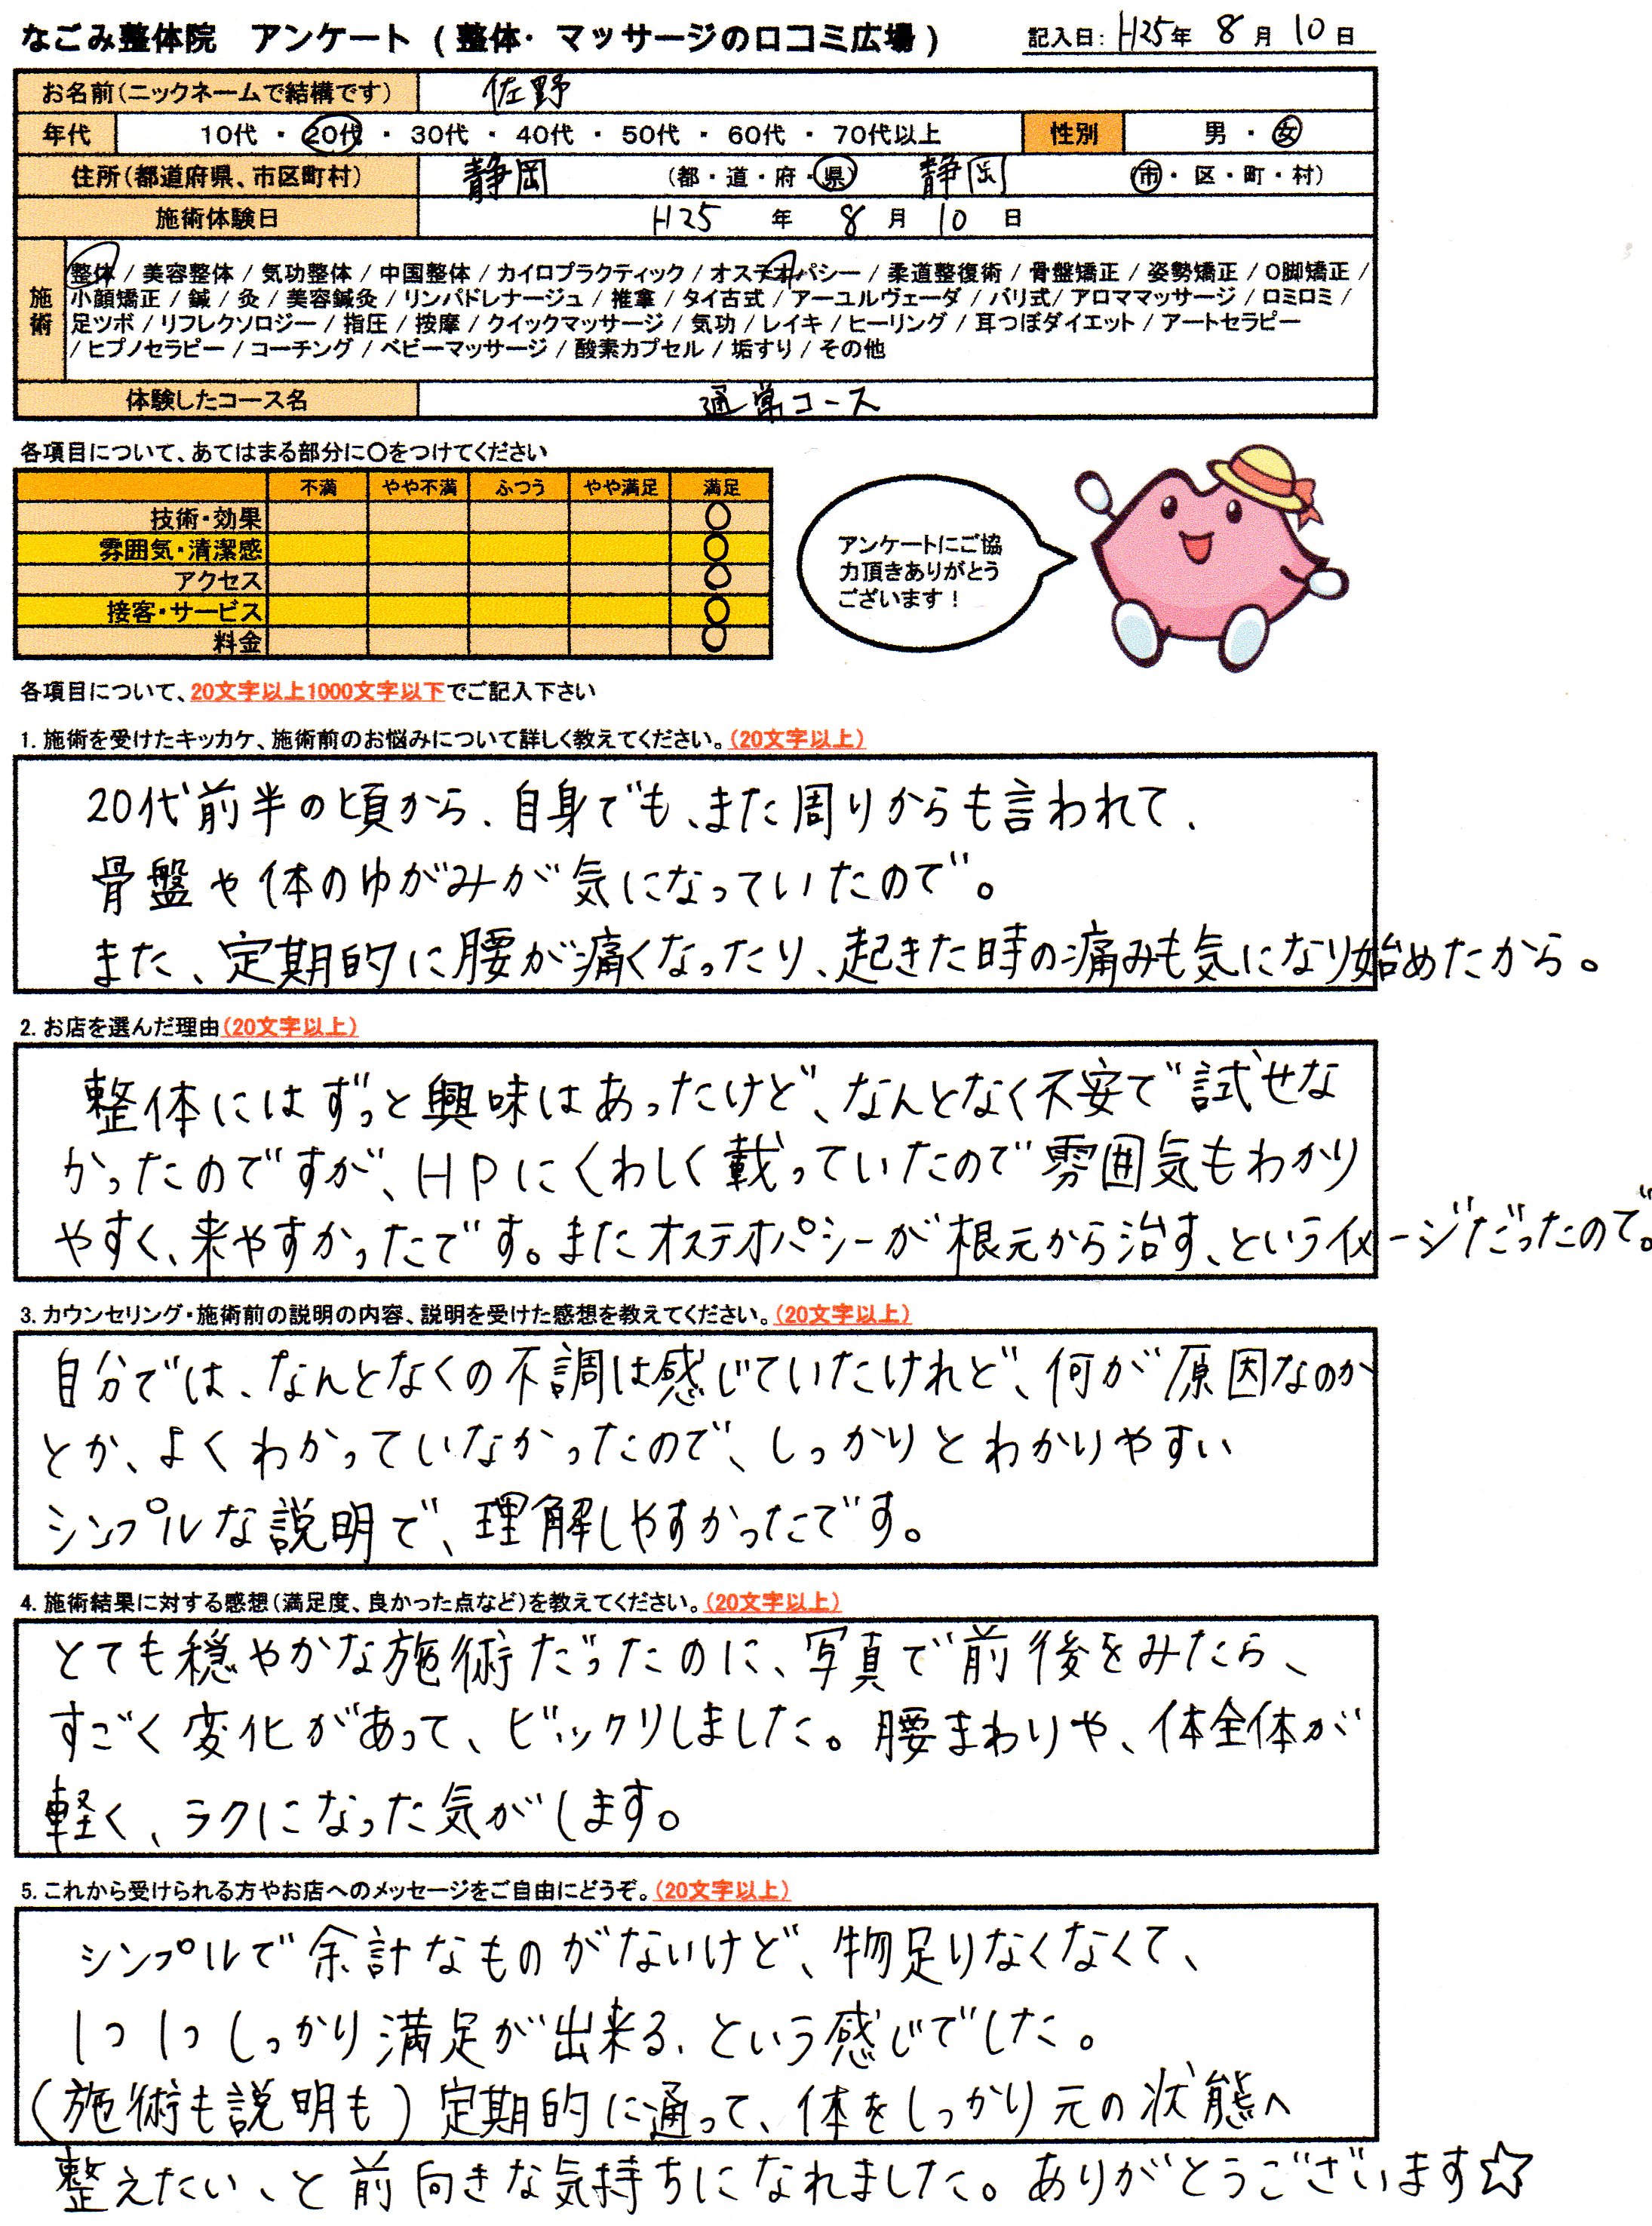 なごみ整体院　アンケート（整体・マッサージの口コミ広場）　記入日：H25年 8月 10日
お名前（ニックネームで結構です）　佐野
年代　10代 ・ 20代 ・ 30代 ・ 40代 ・ 50代 ・ 60代 ・ 70代以上　性別　男 ・ 女
住所（都道府県、市区町村）　静岡　（都・道・府・県）　静岡　（市・区・町・村）
施術体験日　H25 年 8 月 10 日
施術
整体 / 美容整体 / 気功整体 / 中国整体 / カイロプラクティック / オステオパシー / 柔道整復術 / 骨盤矯正 / 姿勢矯正 / O脚矯正 /
小顔矯正 / 鍼 / 灸 / 美容鍼灸 / リンパドレナージュ / 推拿 / タイ古式 / アーユルヴェーダ / バリ式 / アロママッサージ / ロミロミ /
足ツボ / リフレクソロジー / 指圧 / 按摩 / クイックマッサージ / 気功 / レイキ / ヒーリング / 耳つぼダイエット / アートセラピー
/ ヒプノセラピー / コーチング / ベビーマッサージ / 酸素カプセル / 垢すり / その他
体験したコース名　通常コース
各項目について、あてはまる部分に○をつけてください
不満　やや不満　ふつう　やや満足　満足
技術・効果　○
雰囲気・清潔感　○
アクセス　○
接客・サービス　○
料金　○
アンケートにご協
力頂きありがとう
ございます！
各項目について、20文字以上1000文字以下でご記入下さい
1. 施術を受けたキッカケ、施術前のお悩みについて詳しく教えてください。（20文字以上）
20代前半の頃から、自身でも、また周りからも言われて、
骨盤や体のゆがみが気になっていたので。
また、定期的に腰が痛くなったり、起きた時の痛みも気になり始めたから。
2. お店を選んだ理由（20文字以上）
整体にはずっと興味はあったけど、なんとなく不安で試せな
かったのですが、HPにくわしく載っていたので雰囲気もわかり
やすく、来やすかったです。またオステオパシーが根元から治す、というイメージだったので。
3. カウンセリング・施術前の説明の内容、説明を受けた感想を教えてください。（20文字以上）
自分では、なんとなくの不調は感じていたけれど、何が原因なのか
とか、よくわかっていなかったので、しっかりとわかりやすい
シンプルな説明で、理解しやすかったです。
4. 施術結果に対する感想（満足度、良かった点など）を教えてください。（20文字以上）
とても穏やかな施術だったのに、写真で前後をみたら、
すごく変化があって、ビックリしました。腰まわりや、体全体が
軽く、ラクになった気がします。
5. これから受けられる方やお店へのメッセージをご自由にどうぞ。（20文字以上）
シンプルで余計なものがないけど、物足りなくなくて、
1つ1つしっかり満足が出来る、という感じでした。
（施術も説明も）定期的に通って、体をしっかり元の状態へ
整えたい、と前向きな気持ちになれました。ありがとうございます☆